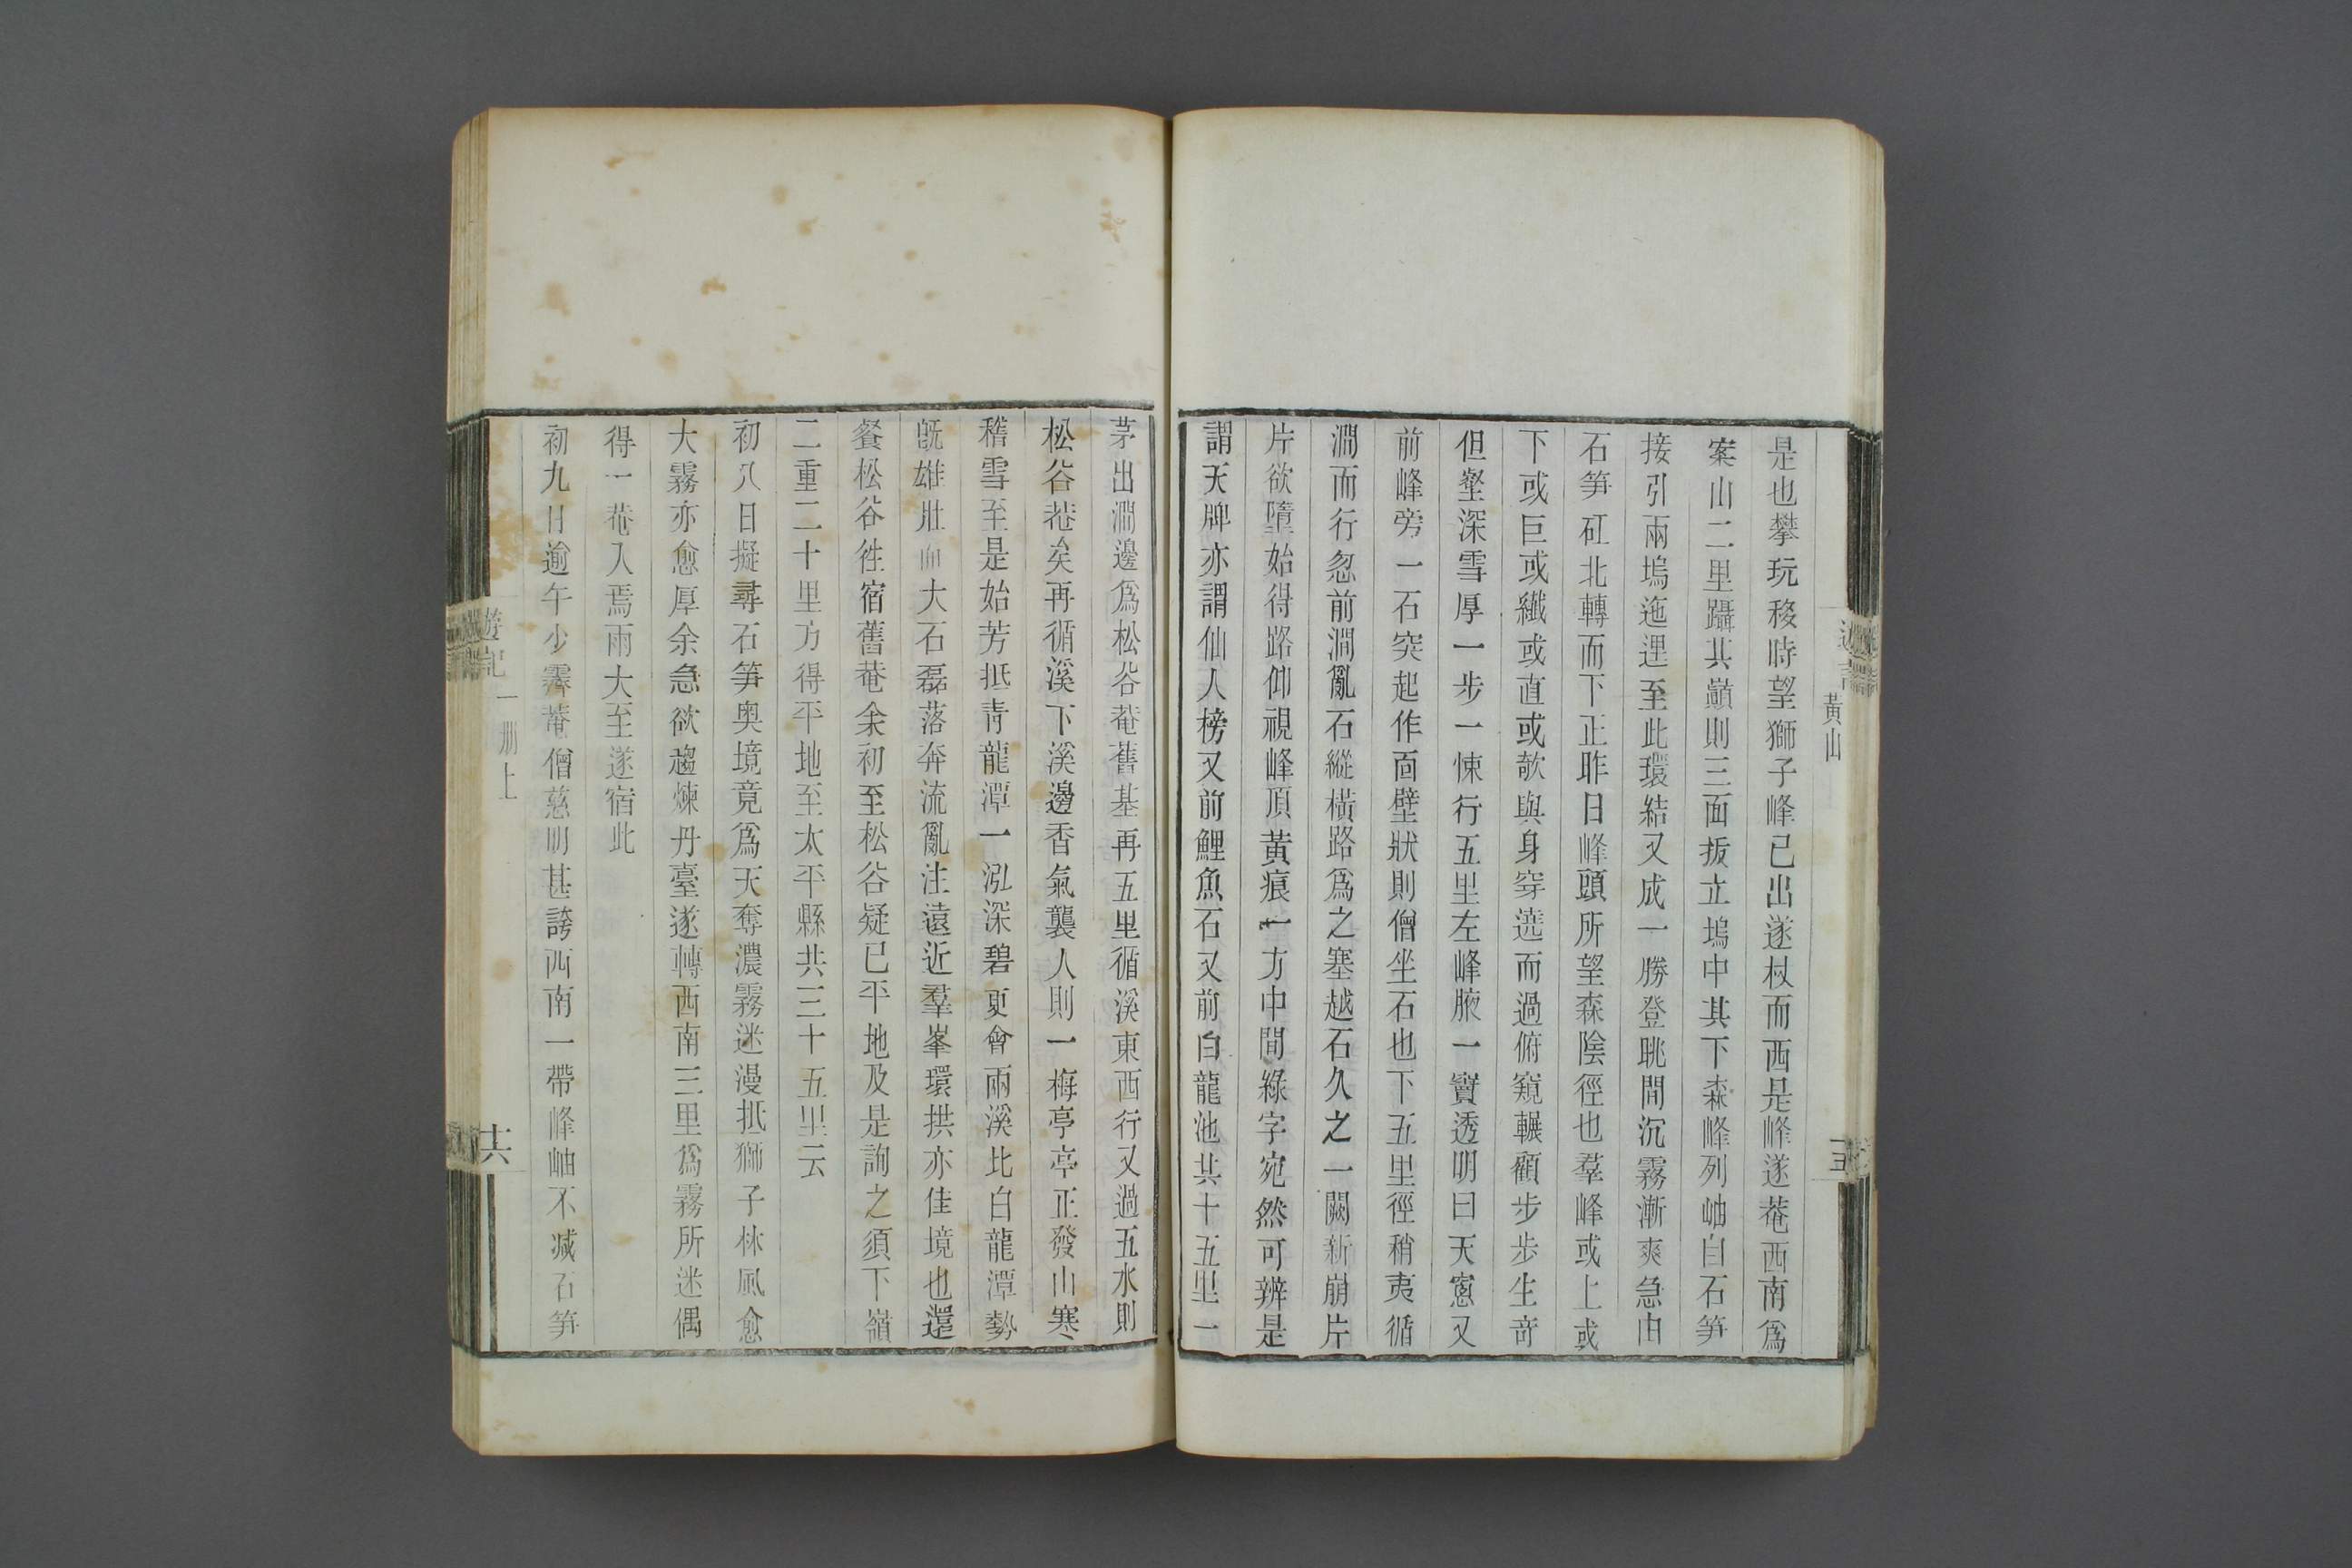 黃山
是也攀玩移時望獅子峰已出遂杖而西是峰遂菴西南爲
案山二里躡其巓則三面扳立塢中其下森峰列岫自石笋
接引兩塢迤逕至此環結又成一勝登眺間沉霧漸爽急由
石笋矼北轉而下正昨日峰頭所望森陰徑也羣峰或上或
下或巨或纖或直或欹與身穿遶而過俯窺輾顧步步生奇
但壑深雪厚一步一悚行五里左峰腋一竇透明曰天窻又
前峰旁一石突起作面壁狀則僧坐石也下五里徑稍夷循
澗而行忽前澗亂石縱橫路爲之塞越石久之一闕新崩片
片欲墮始得路仰視峰頂黃痕一方中間綠字宛然可辨是
謂天牌亦謂仙人榜又前鯉魚石又前白龍池共十五里一
茅出澗邊爲松谷菴舊基再五里循溪東西行又過五水則
松谷菴矣再循溪下溪邊香氣襲人則一梅亭亭正發山寒
稽雪至是始芳抵靑龍潭一泓深碧更會兩溪比白龍潭勢
旣雄壯而大石磊落奔流亂注遠近羣峯環拱亦佳境也還
餐松谷徃宿舊菴余初至松谷疑已平地及是詢之須下嶺
二重二十里方得平地至太平縣共三十五里云
初八日擬尋石笋奧境竟爲天奪濃霧迷漫抵獅子林風愈
大霧亦愈厚余急欲趨煉丹臺遂轉西南三里爲霧所迷偶
得一菴入焉雨大至遂宿此
初九日逾午少霽菴僧慈明甚誇西南一帶峰岫不減石笋
遊記
一册上
十六